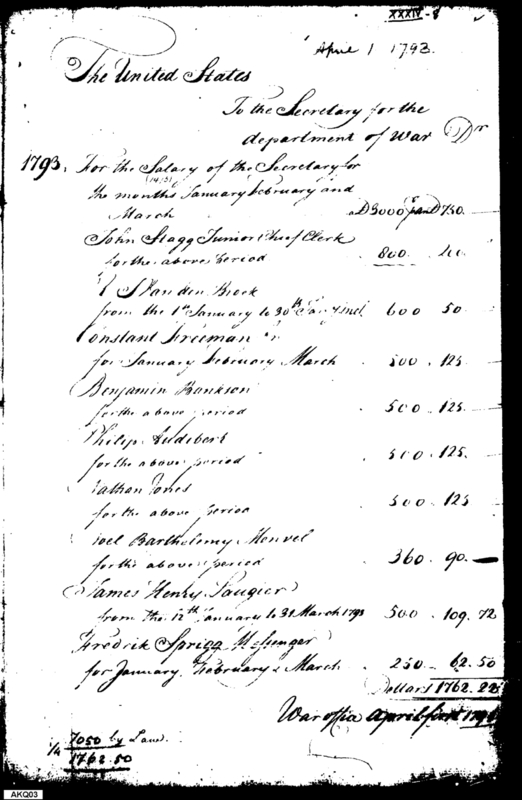 XXXIV-8
April 1 1793.
The United States
To the Secretary for the
department of War Dr
1793. For the Salary of the Secretary for
the months January February and
March a D3000 D750.
John Stagg Junior Chief Clerk
for the above period 800.
Brock
from the 1st January to 30th 600 50.
Constant Freeman
for January February March 500 125
Benjamin Bankson
for the above period 500 125.
Philip Audebert
for the above period 500 125.
Nathan Jones
for the above period 500 125
Barthelemy
for the above period 360 90.
James Henry Laugier
from the 12th January to 31 March 1793 500 109. 72
Fredrik Sprigg Messenger
for January February & March 250 62.50
Dollars 1762.22
War office April first
1/4 7050 by Law.
1762.50
AKQ03